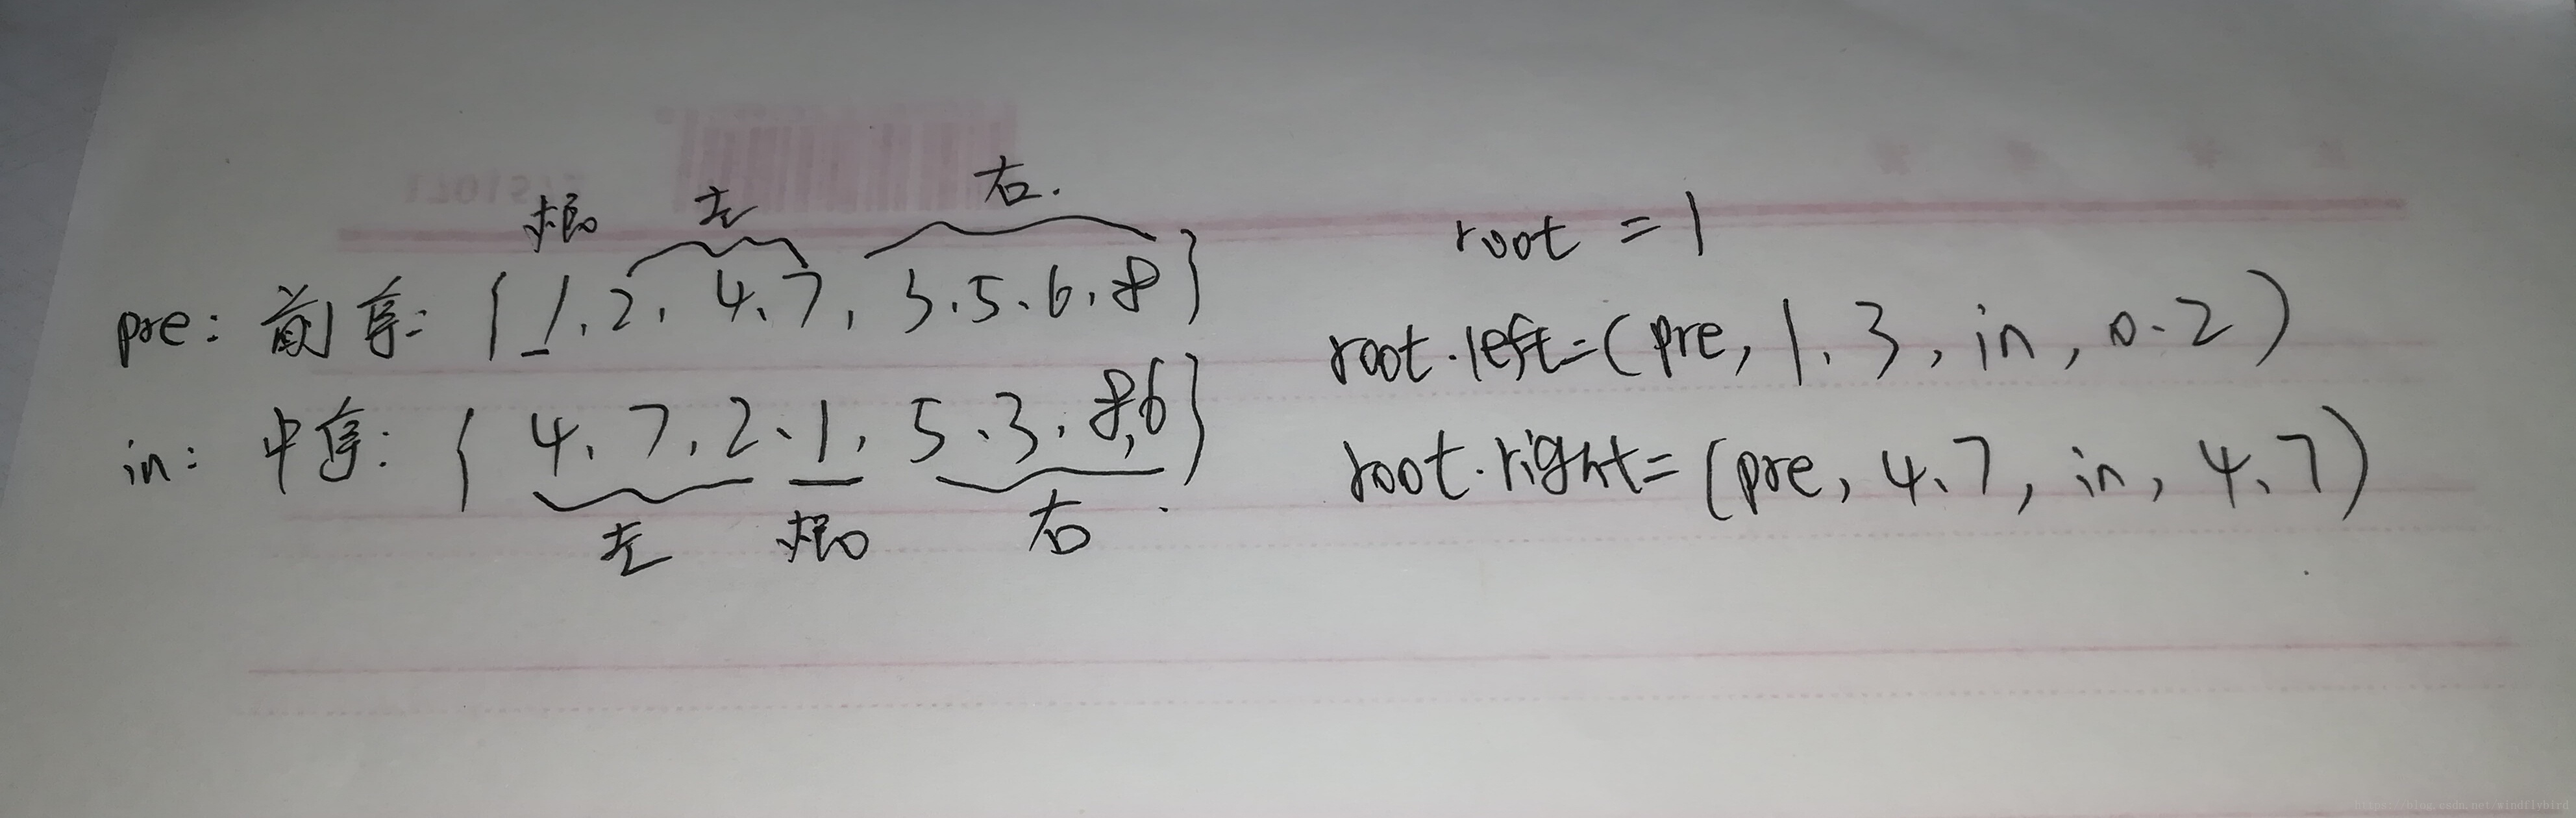 根 左 右.
pre: 前序: { 1, 2, 4、7, 3、5、6、8 }
in: 中序: { 4、7、2、1, 5、3、8,6 }
左 根 右
root = 1
root.left=(pre, 1、3, in, 0、2)
root.right=(pre, 4、7, in, 4、7)
https://blog.csdn.net/windflybird